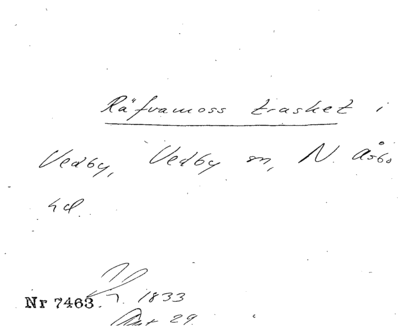 Räfvamoss trasket i
Vedby, Vedby sn, N. Åsbo
hd.
Nr 7463. 1833
29